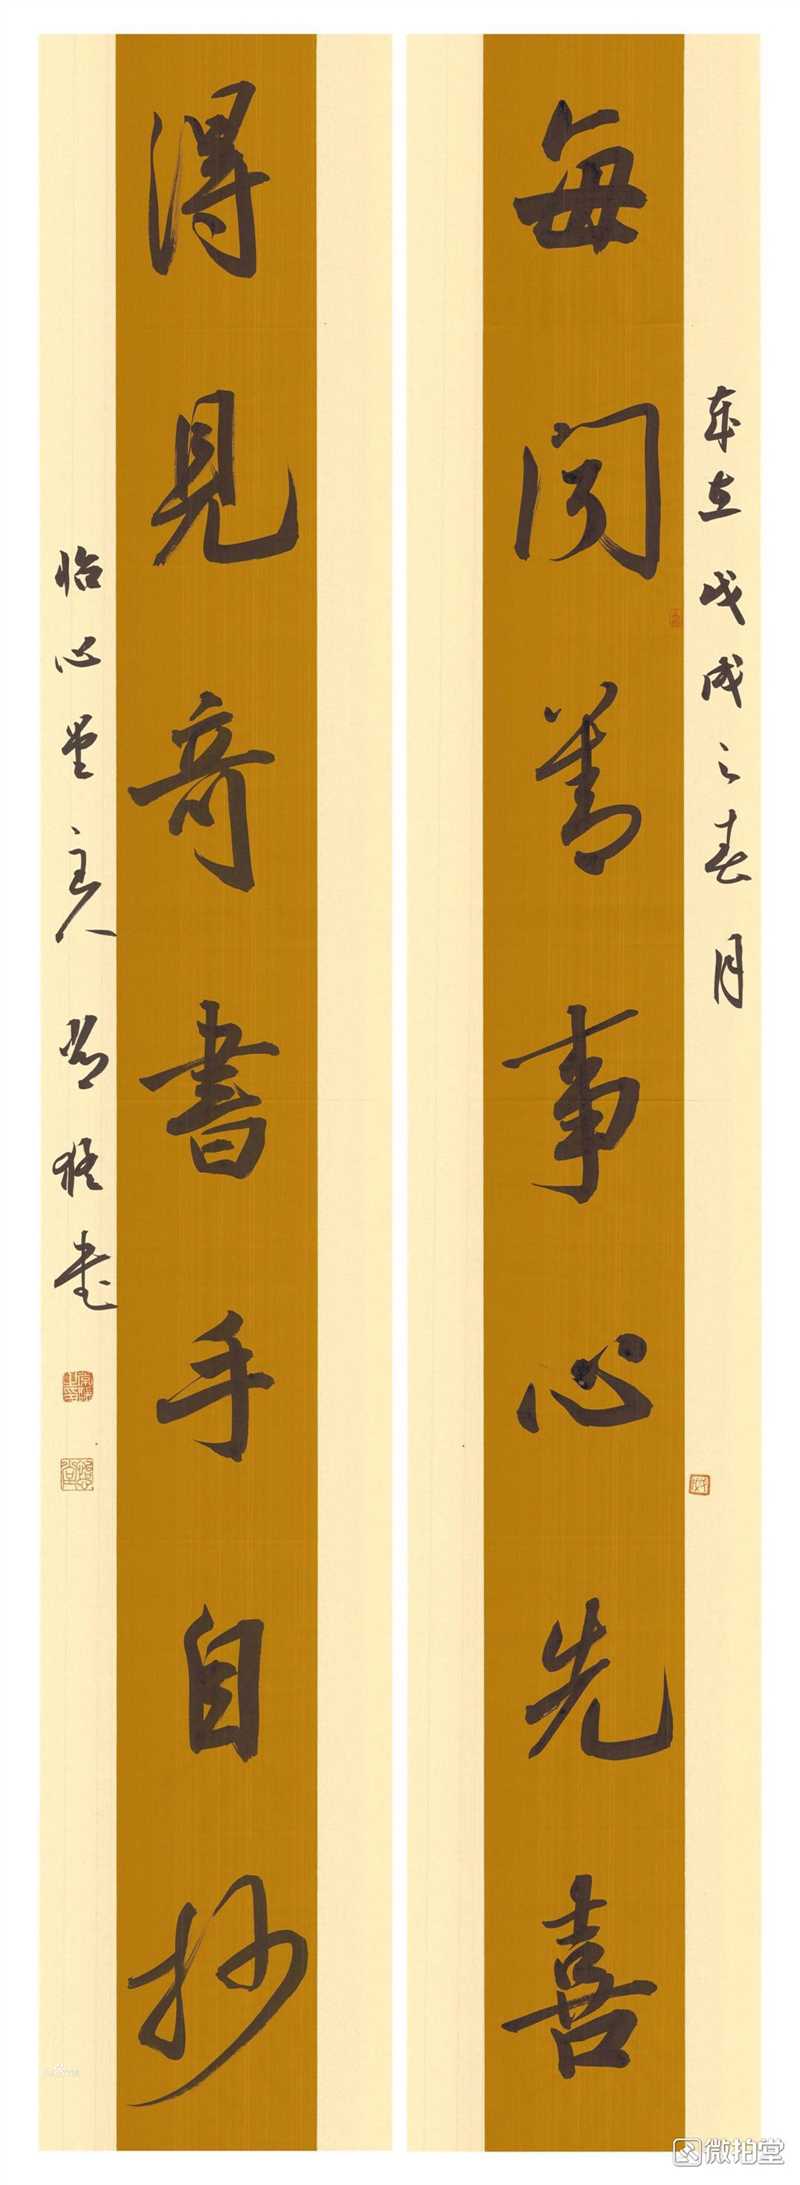 每闻善事心先喜
得见奇書手自抄
歲在戊戌之春月
怡心堂主人
書
微拍堂